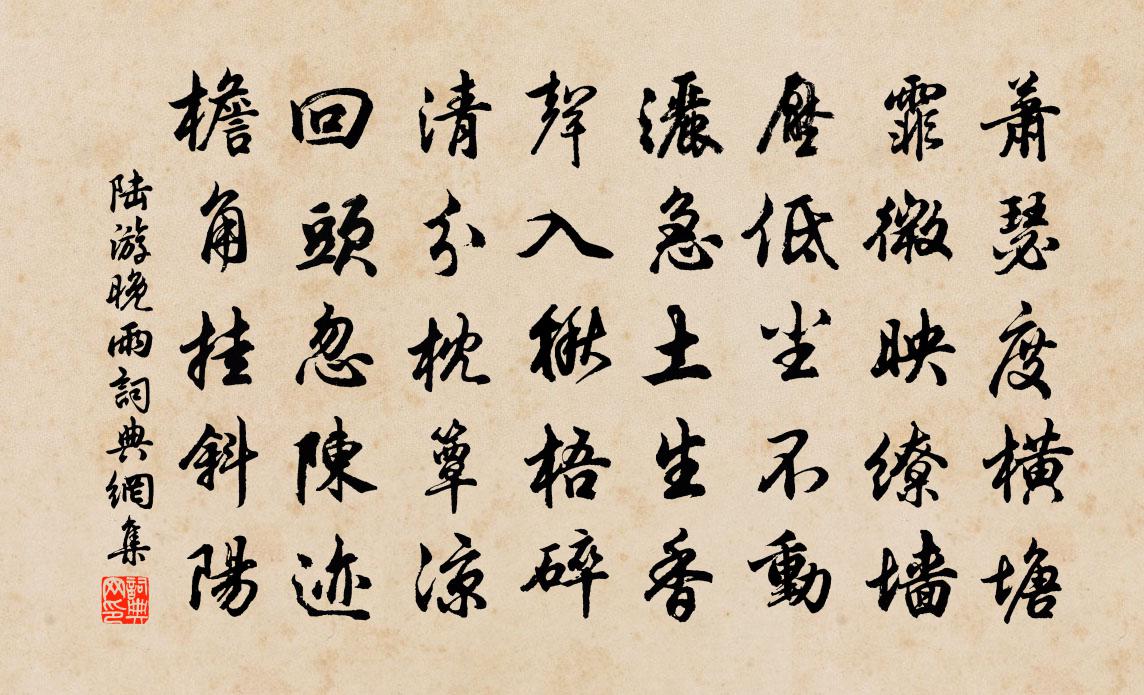 蕭瑟度橫塘
霏微映繚墻
壓低尘不動
灑急土生香
聲入楸梧碎
清分枕簟涼
回頭忽陳迹
檐角挂斜陽
陆游晚雨詞典網集
詞典网印